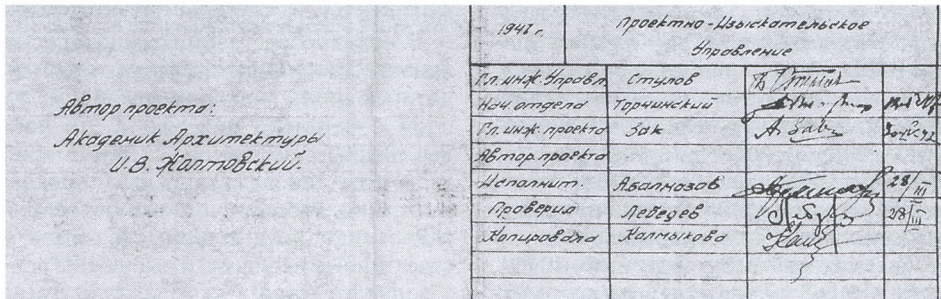 Автор проекта:
Академик Архитектуры
И.В. Жолтовский.
Проектно-Изыскательское
Управление
Гл. инж. Управл. Стулов
Нач. отдела Торчинский
Гл. инж. проекта Зак
Автор проекта
Исполнит. Абалмозов 28/III
Проверил Лебедев 28/III
Копировала Калмыкова